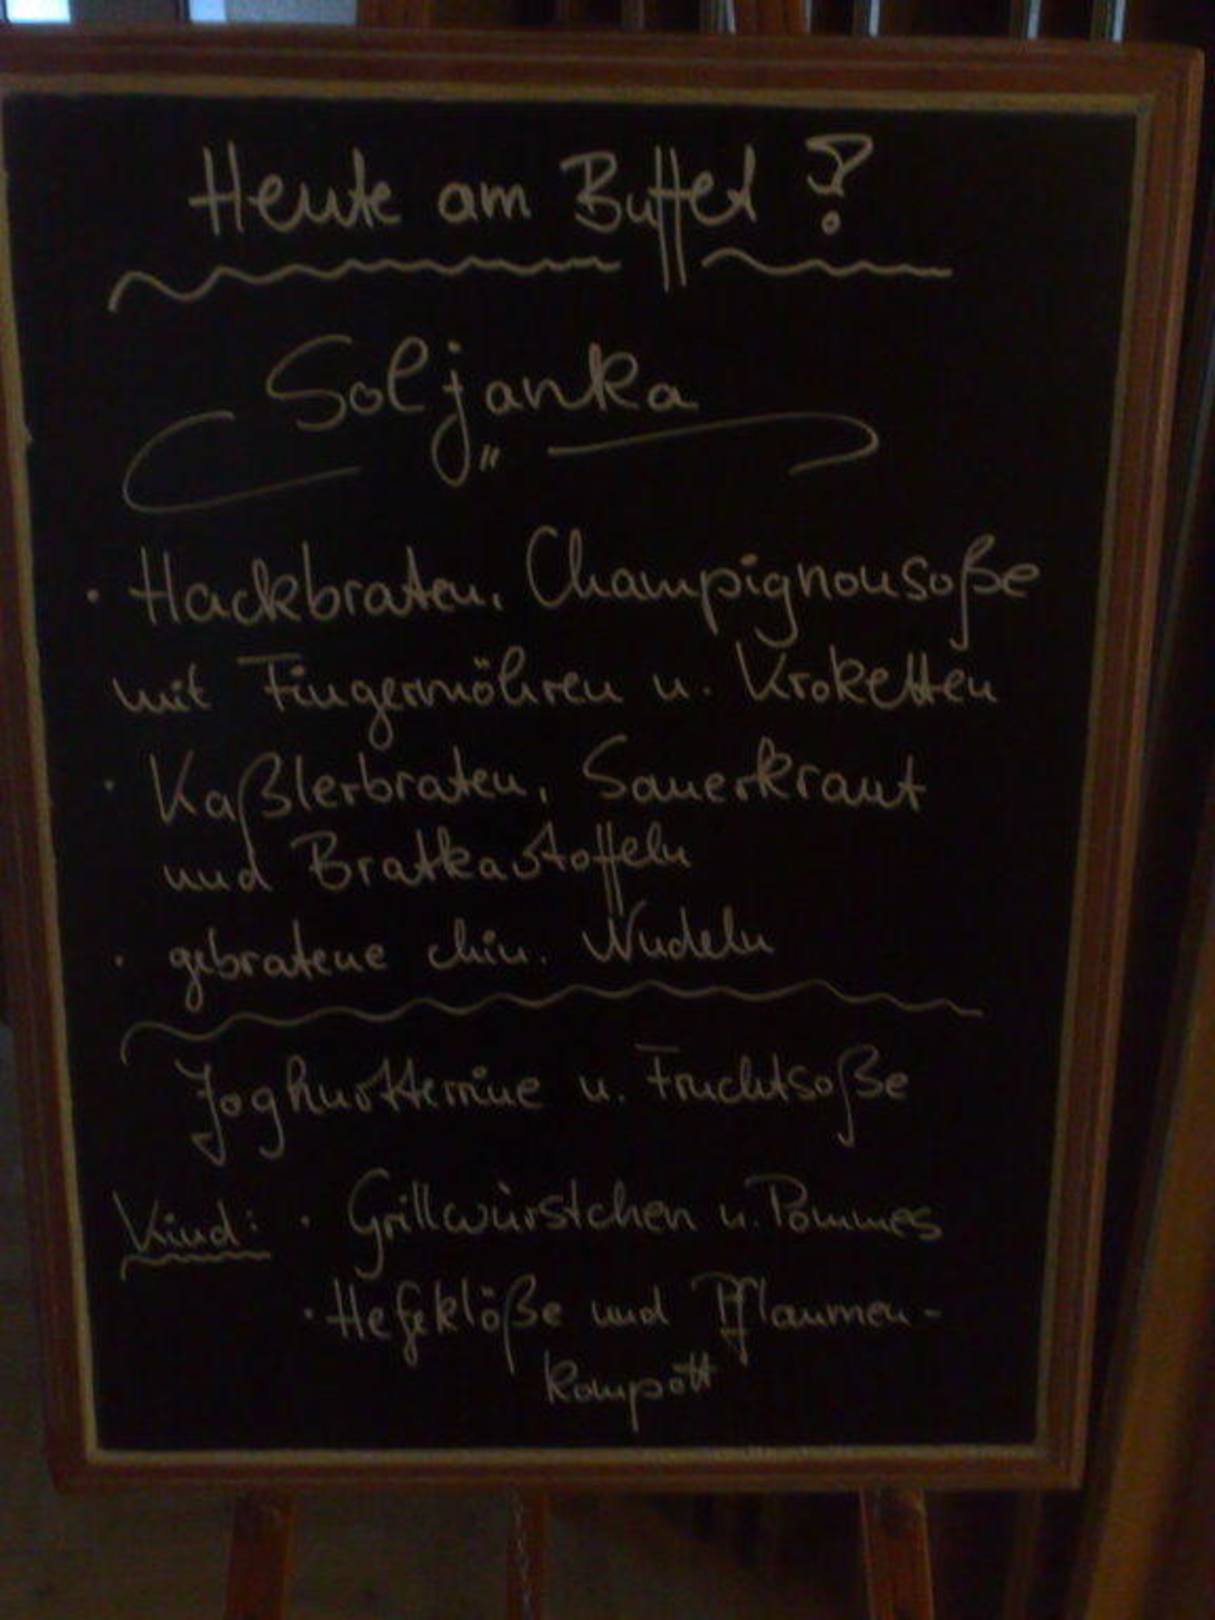 Heute am Buffet ?
Soljanka
· Hackbraten, Champignonsoße
mit Fingermöhren u. Kroketten
· Kaßlerbraten, Sauerkraut
und Bratkartoffeln
· gebratene chin. Nudeln
Joghurtterrine u. Fruchtsoße
Kind: · Grillwürstchen u. Pommes
· Hefeklöße und Pflaumen-
kompott